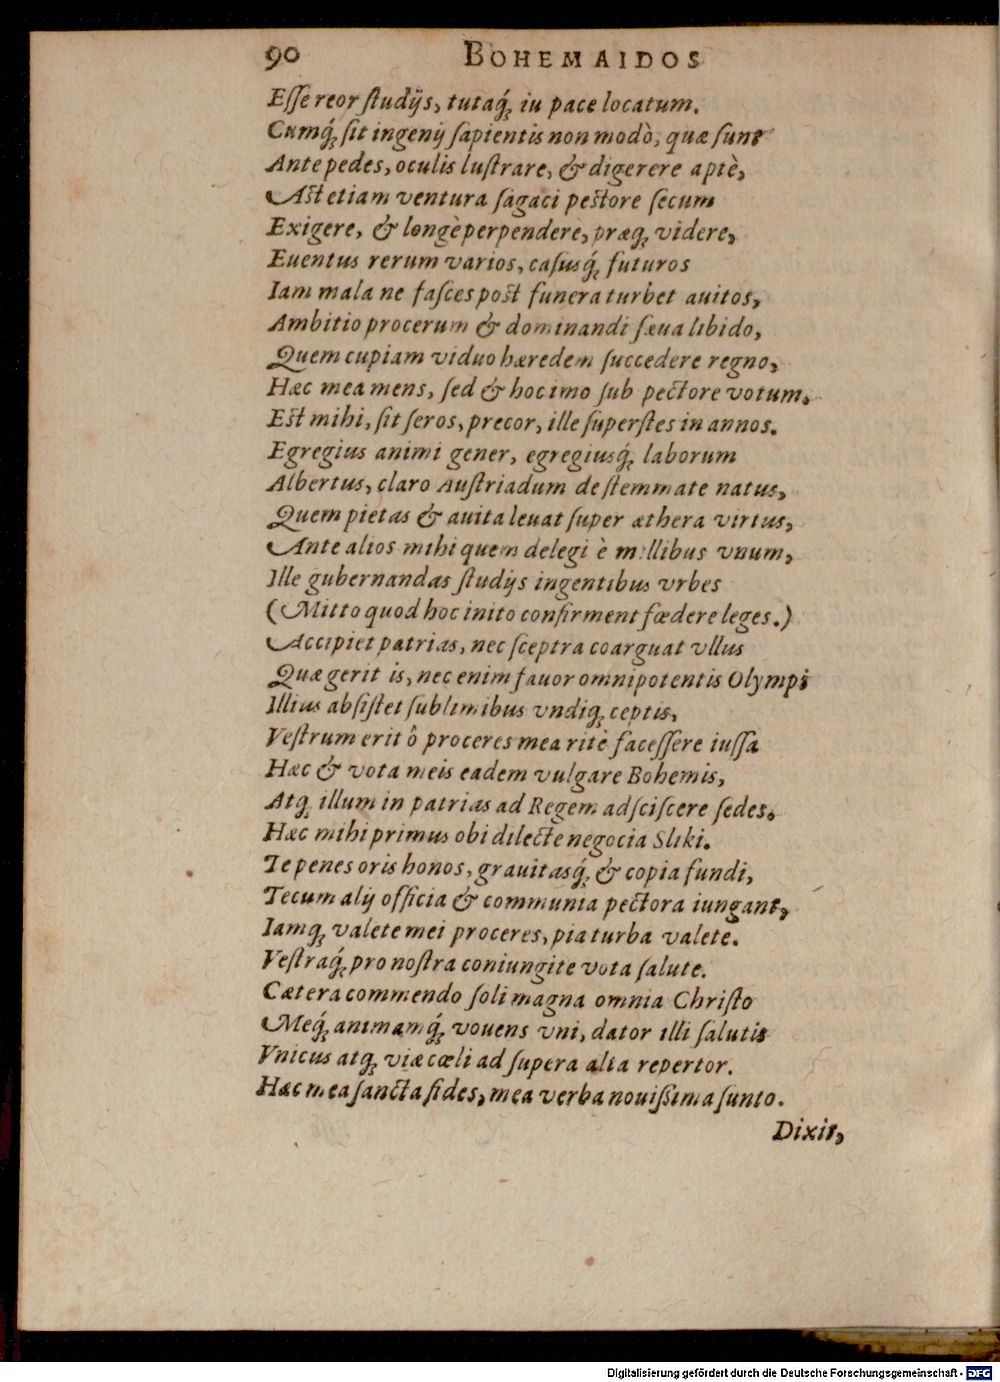 90 BOHEMAIDOS
Eſſe reor ſtudijs, tutaq́; iu pace locatum.
Cumq́; ſit ingenij ſapientis non modò, quæ ſunt
Ante pedes, oculis luſtrare, & digerere aptè,
Aſt etiam ventura ſagaci pectore ſecum
Exigere, & longè perpendere, præq; videre,
Euentus rerum varios, caſusq́; futuros
Iam mala ne faſces poſt funera turbet auitos,
Ambitio procerum & dominandi ſæua libido,
Quem cupiam viduo hæredem ſuccedere regno,
Hæc mea mens, ſed & hoc imo ſub pectore votum.
Eſt mihi, ſit ſeros, precor, ille ſuperſtes in annos.
Egregius animi gener, egregiusq́; laborum
Albertus, claro Auſtriadum de ſtemmate natus,
Quem pietas & auita leuat ſuper æthera virtus,
Ante alios mihi quem delegi è millibus vnum,
Ille gubernandas ſtudijs ingentibus vrbes
(Mitto quod hoc inito confirment fœdere leges.)
Accipiet patrias, nec ſceptra coarguat vllus
Quæ gerit is, nec enim fauor omnipotentis Olympi
Illius abſiſtet ſublimibus vndiq; ceptis,
Veſtrum erit ô proceres mea ritè faceſſere iuſſa
Hæc & vota meis eadem vulgare Bohemis,
Atq; illum in patrias ad Regem adſciſcere ſedes.
Hæc mihi primus obi dilecte negocia Sliki.
Te penes oris honos, grauitasq́; & copia fundi,
Tecum alij officia & communia pectora iungant,
Iamq; valete mei proceres, pia turba valete.
Veſtraq́; pro noſtra coniungite vota ſalute.
Cætera commendo ſoli magna omnia Chriſto
Meq́; animamq́; vouens vni, dator illi ſalutis
Vnicus atq; viæ cœli ad ſupera alta repertor.
Hæc mea ſancta fides, mea verba nouiſſima ſunto.
Dixit,
Digitalisierung gefördert durch die Deutsche Forschungsgemeinschaft - DFG